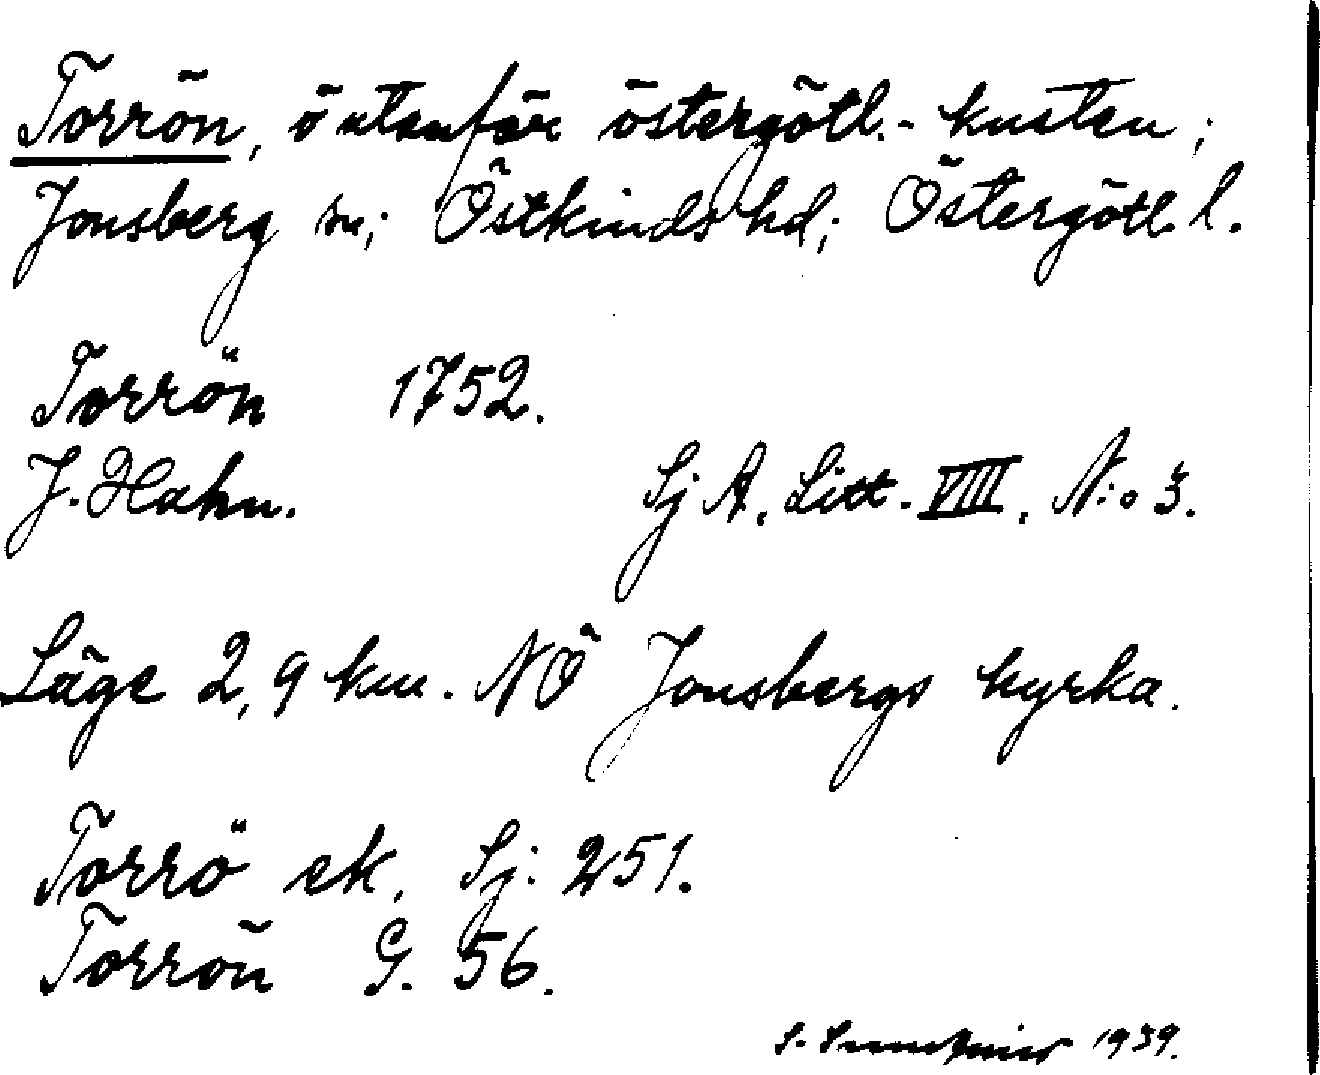 Torrön, ö utanför östergötl.- kusten;
Jonsberg sn; Östkinds hd; Östergötl. l.
Torrön 1752.
J. Hahn. Sj A. Litt. VIII. N:o 3.
Läge 2,9 km. NÖ Jonsbergs kyrka.
Torrö ek. Sj: 251.
Torrön G. 56.
S. 1939.